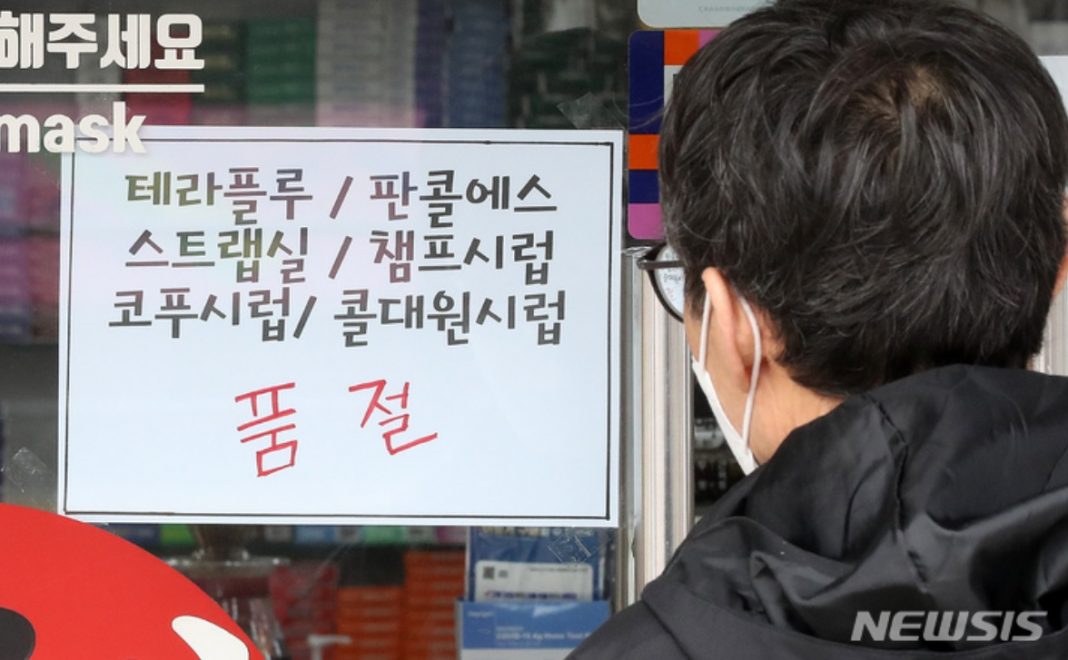 해주세요
mask
테라플루 / 판콜에스
스트랩실 / 챔프시럽
코푸시럽/ 콜대원시럽
품절
COVID-19 Ag Home Test
NEWSIS